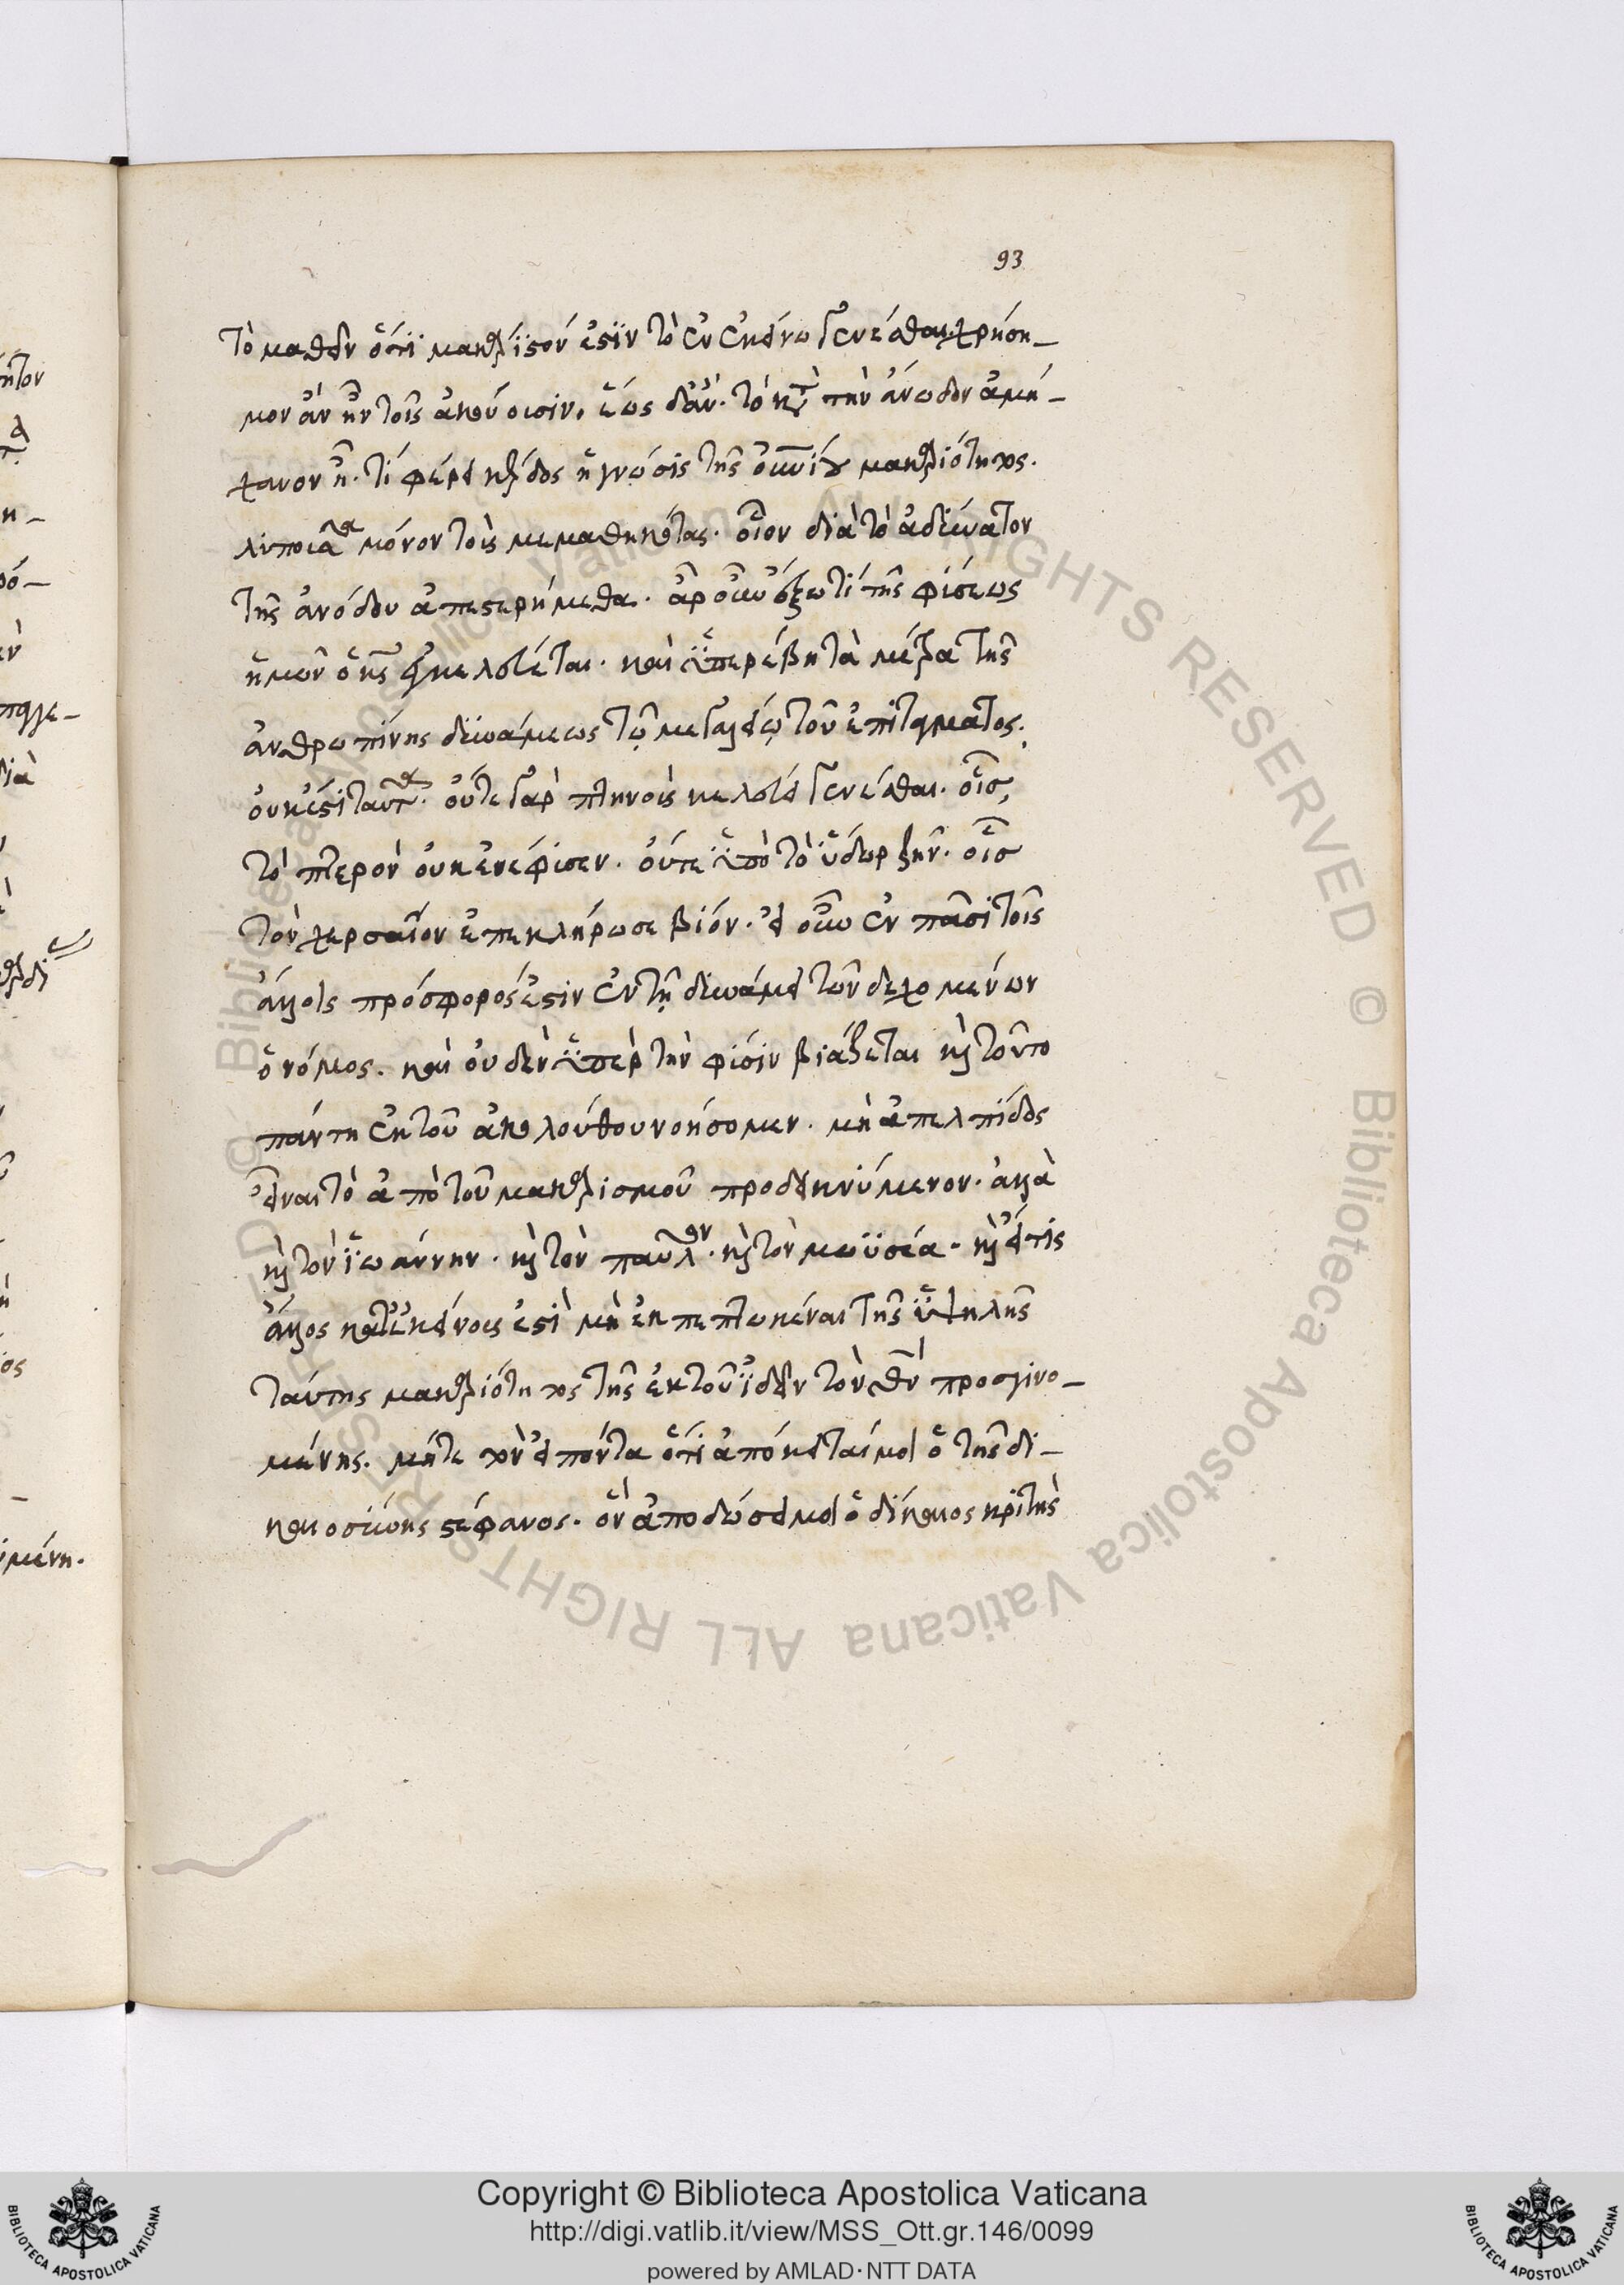 93
τὸ μαθεῖν ὅτι μακάριστόν ἐστιν τὸ ἐν ἐκείνω γενέσθαι χρήσι-
μον ἂν ἦν τοῖς ἀκούουσιν. ἕως δ' ἂν τὸ κατὰ τὴν ἄνοδον ἀμή-
χανον ᾖ. τί φέρει κέρδος ἡ γνῶσις τῆς οὐρανίου μακαριότητος.
λυποῦσα μόνον τοὺς μεμαθηκότας. οἷον διὰ τὸ ἀδύνατον
τῆς ἀνόδου ἀπεστερήμεθα. ἆρ' οὖν ἔξω τί τῆς φύσεως
ἡμῶν ὁ κς ἐγκελεύεται. καὶ ὑπερέβη τὰ μέτρα τῆς
ἀνθρωπίνης δυνάμεως τῷ μεγαλείῳ τοῦ ἐπιτάγματος.
οὐκ ἔστι ταῦτα. οὔτε γὰρ πτηνοὺς κελεύει γενέσθαι. οἷς
τὸ πτερὸν οὐκ ἐνέφυσεν. οὔτε ὑπὸ τὸ ὕδωρ ζῆν. οἷς
τὸν χερσαῖον ἐπεκλήρωσε βίον. εἰ οὖν ἐν πᾶσι τοῖς
ἄλλοις πρόσφορός ἐστιν ἐν τῇ δυνάμει τῶν δεχομένων
ὁ νόμος. καὶ οὐδὲν ὑπὲρ τὴν φύσιν βιάζεται καὶ τοῦτο
πάντη ἐκ τοῦ ἀκολούθου νοήσομεν. μὴ ἀπελπίδος
εἶναι τὸ ἀπὸ τοῦ μακαρισμοῦ προδεικνύμενον. ἀλλὰ
καὶ τὸν ἰωάννην. καὶ τὸν παῦλον. καὶ τὸν μωϋσέα. καὶ εἴ τις
ἄλλος κατ' ἐκείνους ἐστὶ μὴ ἐκπεπτωκέναι τῆς ὑψηλῆς
ταύτης μακαριότητος τῆς ἐκ τοῦ ἰδεῖν τὸν θν προσγινο-
μένης. μήτε τὸν εἰπόντα ὅτι ἀπόκειταί μοι ὁ τῆς δι-
καιοσύνης στέφανος. ὃν ἀποδώσει μοι ὁ δίκαιος κριτὴς
Copyright © Biblioteca Apostolica Vaticana
http://digi.vatlib.it/view/MSS_Ott.gr.146/0099
powered by AMLAD·NTT DATA